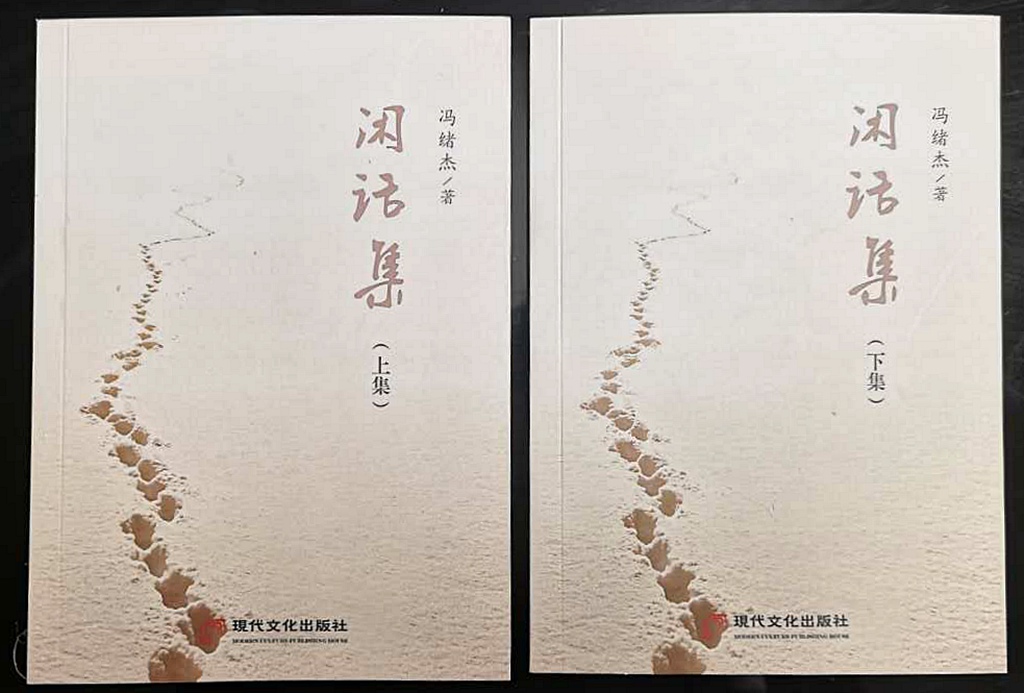 冯绪杰/著
闲话集
(上集)
現代文化出版社
MODERN CULTURE PUBLISHING HOUSE
冯绪杰/著
闲话集
(下集)
現代文化出版社
MODERN CULTURE PUBLISHING HOUSE